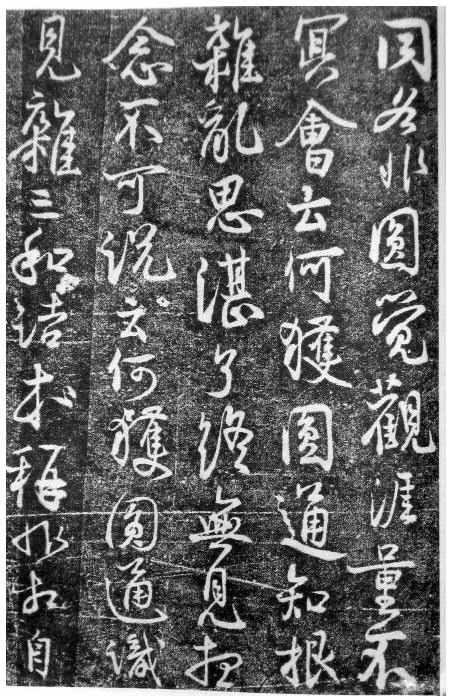 同各非圓覺觀涯量不
冥會云何獲圓通知根
雜亂思湛了終無見想
念不可説云何獲圓通識
見雜三和詰本稱非相自